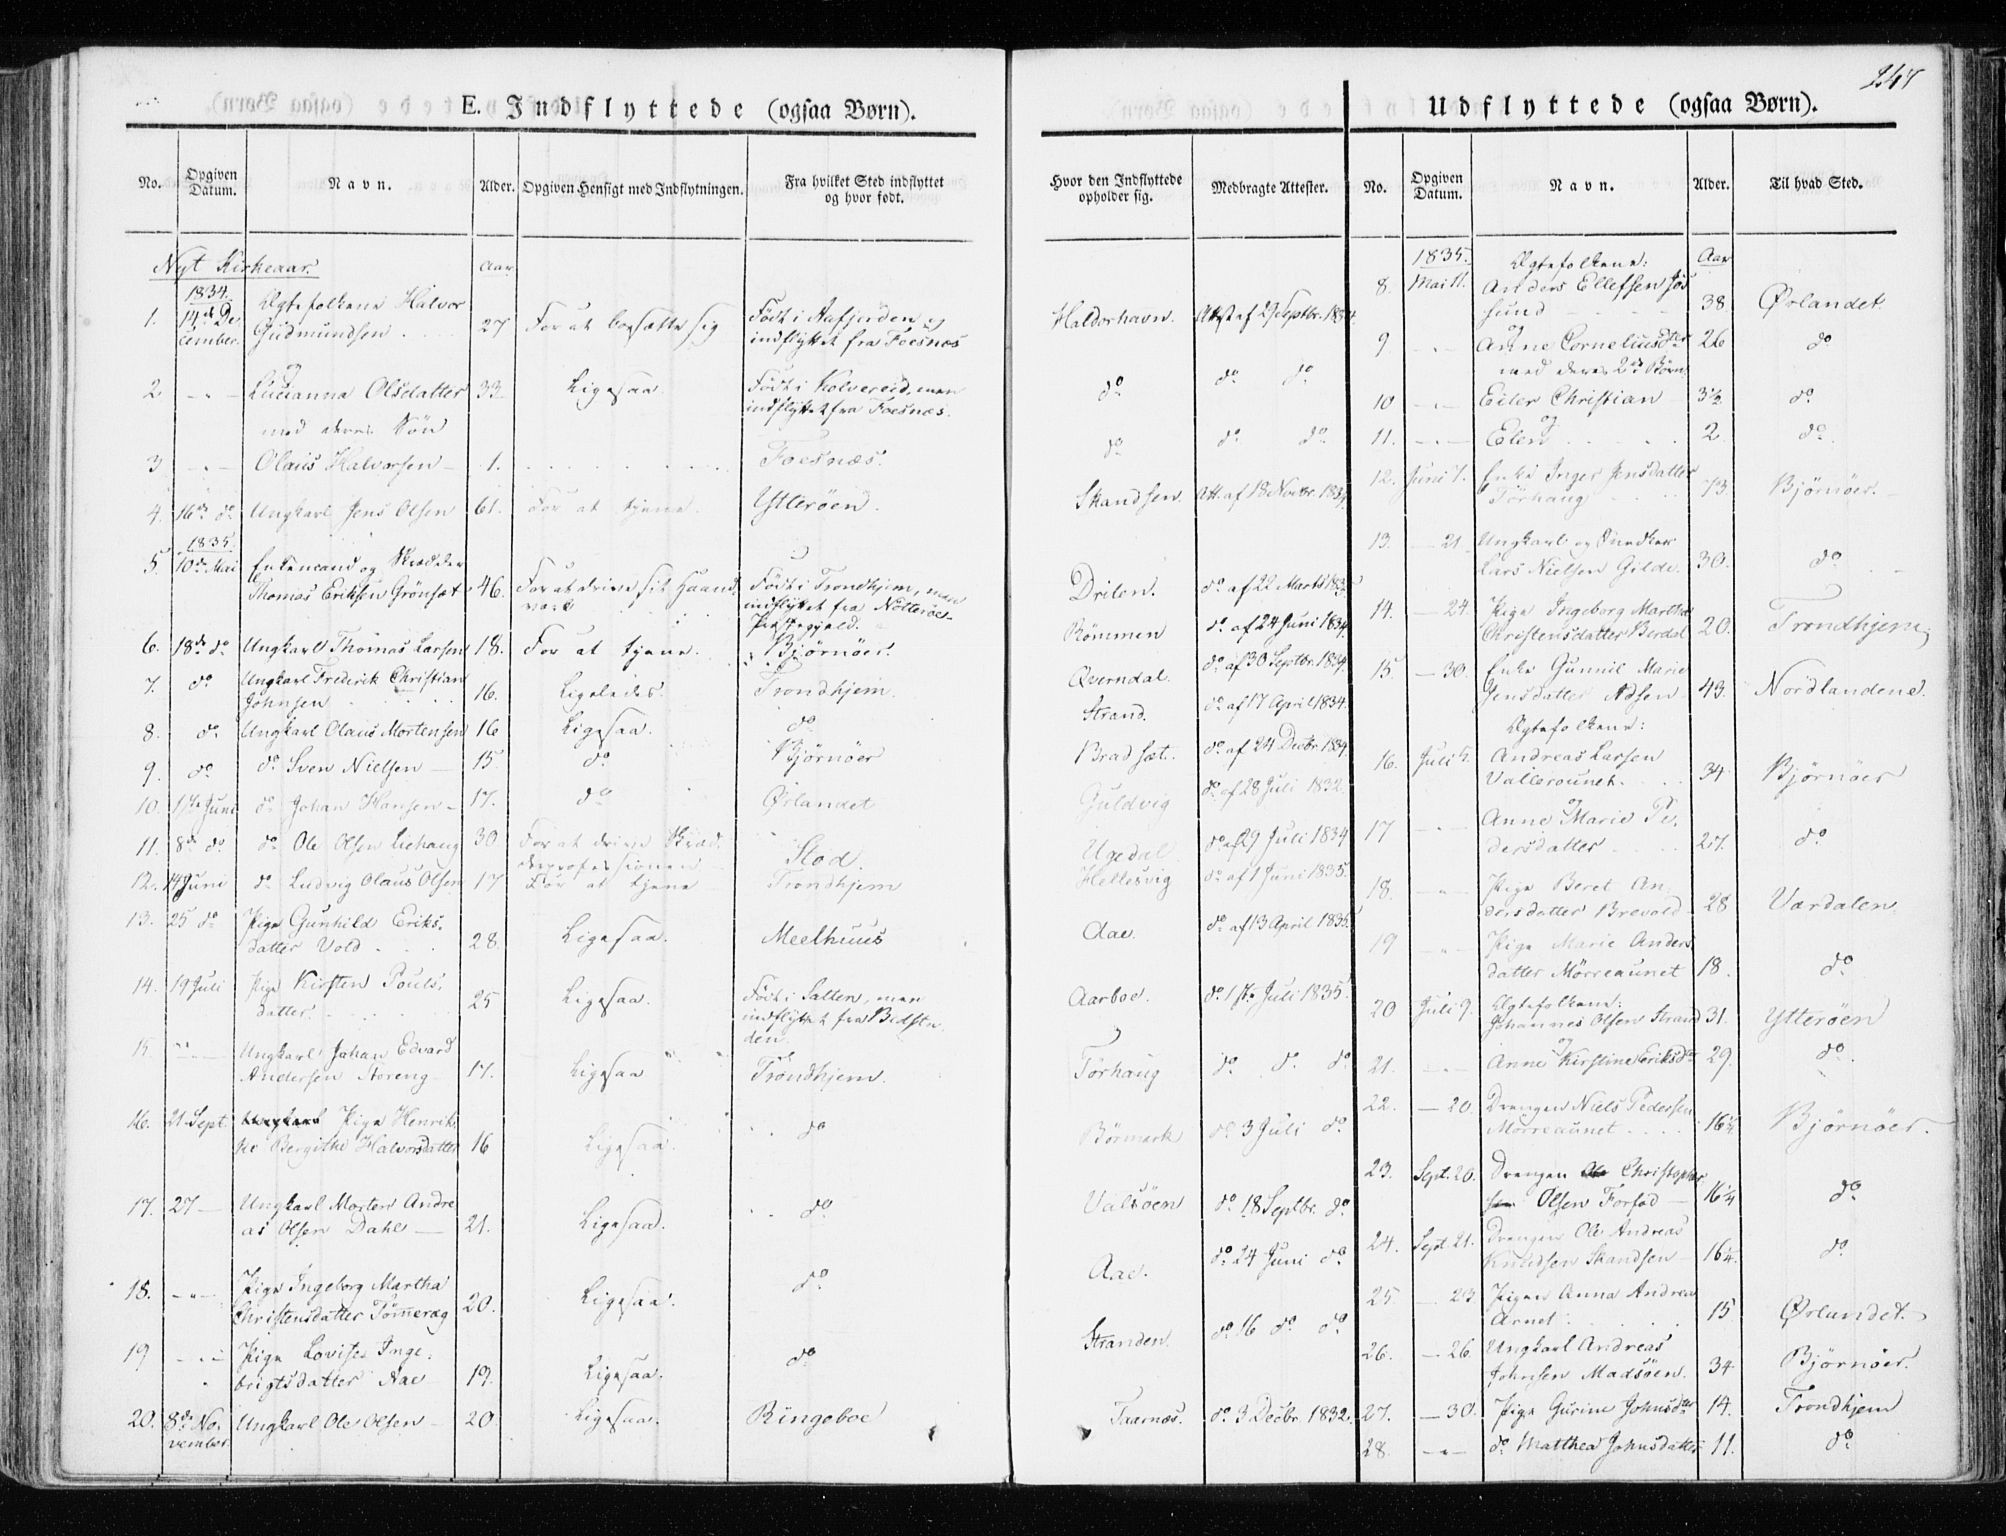 247
E. Indflyttede (ogsaa Børn).
No. Opgiven Datum. Navn. Alder. Opgiven Hensigt med Indflytningen. Fra hvilket Sted indflyttet og hvor født.
Nyt Kirkeaar. Aar
1834.
1. 14de December. Ægtefolkene Halvor Gudmundsen 27 For at bosætte sig Født i Aafjorden og indflyttet fra Foesnæs
og
2 - " - Lucianna Olsdatter 33 Ligesaa. Født i Kolvereid, men indflyttet fra Foesnæs.
med deres Søn
3 - " - Olaus Halvorsen - 1. Foesnæs.
4. 16de do Ungkarl Jens Olsen 61. For at tjene. Ytterøen.
1835.
5. 10de Mai Enkemand og Skrædder Thomas Eriksen Grønsæt 46. For at drive sit Haandværk Født i Trondhjem, men indflyttet fra Præstegjeld.
6. 18de do Ungkarl Thomas Larsen 18. For at tjene. Bjørnøer.
7. do Ungkarl Frederik Christian Johnsen 16. Ligeledes. Trondhjem.
8. do Ungkarl Olaus Mortensen 16 Ligesaa. do
9. do do Sven Nielsen - 15. do Bjørnøer
10. 1ste Juni do Johan Hansen - 17. do Ørlandet
11. 8de do do Ole Olsen Liehaug 30 For at drive Skrædderprofessionen Stod.
12. 14 Juni do Ludvig Olaus Olsen 17 For at tjene Trondhjem
13. 25 do Pige Gunhild Eriksdatter Vold 28. Ligesaa. Meelhuus
14. 19 Juli Pige Kirsten Poulsdatter 25 Ligesaa. Født i Salten, men indflyttet fra Bedstaden.
15. - " - Ungkarl Johan Edvard Andersen Aoreng 17. Ligesaa Trondhjem.
16. 21 Sept. Ungkarl Pige Henrikke Bergithe Halvorsdatter 16 Ligesaa. do
17. 27 - Ungkarl Morten Andreas Olsen Dahl - 21. Ligesaa. do
18. - " - Pige Ingeborg Martha Christensdatter Tømeraeg 20. Ligesaa. do
19 - " - Pige Lovise Ingebrigtsdatter Aae 19. Ligesaa. do
20. 8de November Ungkarl Ole Olsen - 20 Ligesaa. Ringeboe
Hvor den Indflyttede opholder sig. Medbragte Attester.
Haldorhavn. Attest af 29 Septbr. 1834.
do do do
do do do
Skandsen. Att. af 18 Novbr. 1834.
Drilen. do af 22 Marts 1835
Rømmen do af 24 Juni 1834.
Qverndal. do af 30 Septbr. 1834.
Strand. do af 17 April 1834.
Bradsæt. do af 24 Decbr. 1834.
Guldvig do af 28 Juli 1832.
Ugedal do af 29 Juli 1834
Hellesvig do af 1 Juni 1835.
Aae. do af 13 April 1835.
Aarboe. do 1ste Juli 1835.
Tørhaug do do do
Børmark do 3 Juli do
Valsøen do 18 Septbr. do
Aae. do 24 Juni do
Stranden. do 16 do do
Taarnæs. do 3 Decbr. 1832.
Udflyttede (ogsaa Børn).
No. Opgiven Datum. Navn. Alder. Til hvad Sted.
1835. Ægtefolkene: Aar
8. Mai 11. Anders Ellefsen Jøssund 38 Ørlandet.
og
9 - " - Anne Corneliusdter 26 do
med deres 2de Børn
10 - " - Eiler Christian 3½ do
og
11. - " - Elen 2 do
12. Juni 7. Enke Inger Jensdatter Tørhaug 73. Bjørnøer. -
13. - 21. Ungkarl og Snedker Lars Nielsen Gilde. 30. do
14. - 24. Pige Ingeborg Martha Christensdatter Berdal 20. Trondhjem.
15. - 30. Enke Gunnil Marie Jensdatter Adsen 43. Nordlandene.
Ægtefolkene:
16. Juli 5. Andreas Larsen Vallerounet. 34 Bjørnøer
og
17 - " - Anne Marie Pedersdatter 27. do
18. - " - Pige Beret Andersdatter Brevold 28 Værdalen
19 - " - Pige Marie Andersdatter Mørreaunet 18. do
20 Juli 9. Ægtefolkene: Johannes Olsen Strand 31. Ytterøen
og
21. - " - Anne Kirstine Eriksdter 29. do
22. - 20. Drengen Niels Pedersen Mørreaunet 16¼ Bjørnøer.
23. Sept. 20. Drengen Ole Christopher Olsen Forfod - 16¼ do
24. Sept. 21. Drengen Ole Andreas Knudsen Skandsen 16¼ do
25 - 23 Pigen Anna Andrea Arnet 15 Ørlandet
26. - 26 Ungkarl Andreas Johnsen Madsøen. 34 Bjørnøer.
27. - 30. Pige Gurine Johnsdter 14. Trondhjem
28. - " - do Matthea Johnsdatter 11. do